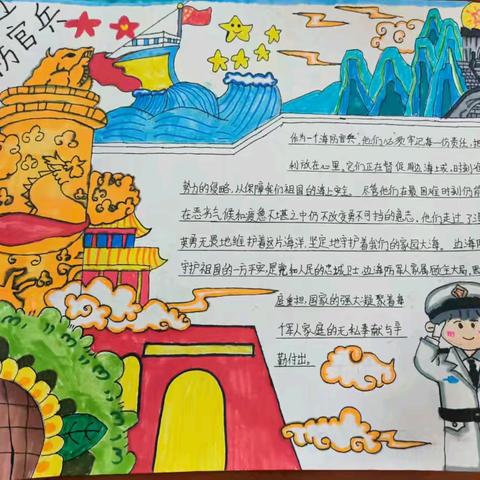 边
防官兵
作为一个海防官兵，他们必须牢记每一份责任，把
利放在心里，它们正在督促周边海上或，时刻
势力的侵略，从保障我们祖国的海上安全。尽管他们在最困难时刻仍
在恶劣气候和疲惫不堪之中仍不改变勇不可挡的意志，他们走过了
英勇无畏地维护着这片海洋，坚定地守护着我们的家园大海。边海防
守护祖国的一方平安，是党和人民的忠诚卫士，边海防军人家属顾全大局，
庭重担，国家的强大凝聚着每
个军人家庭的无私奉献与辛
勤付出。